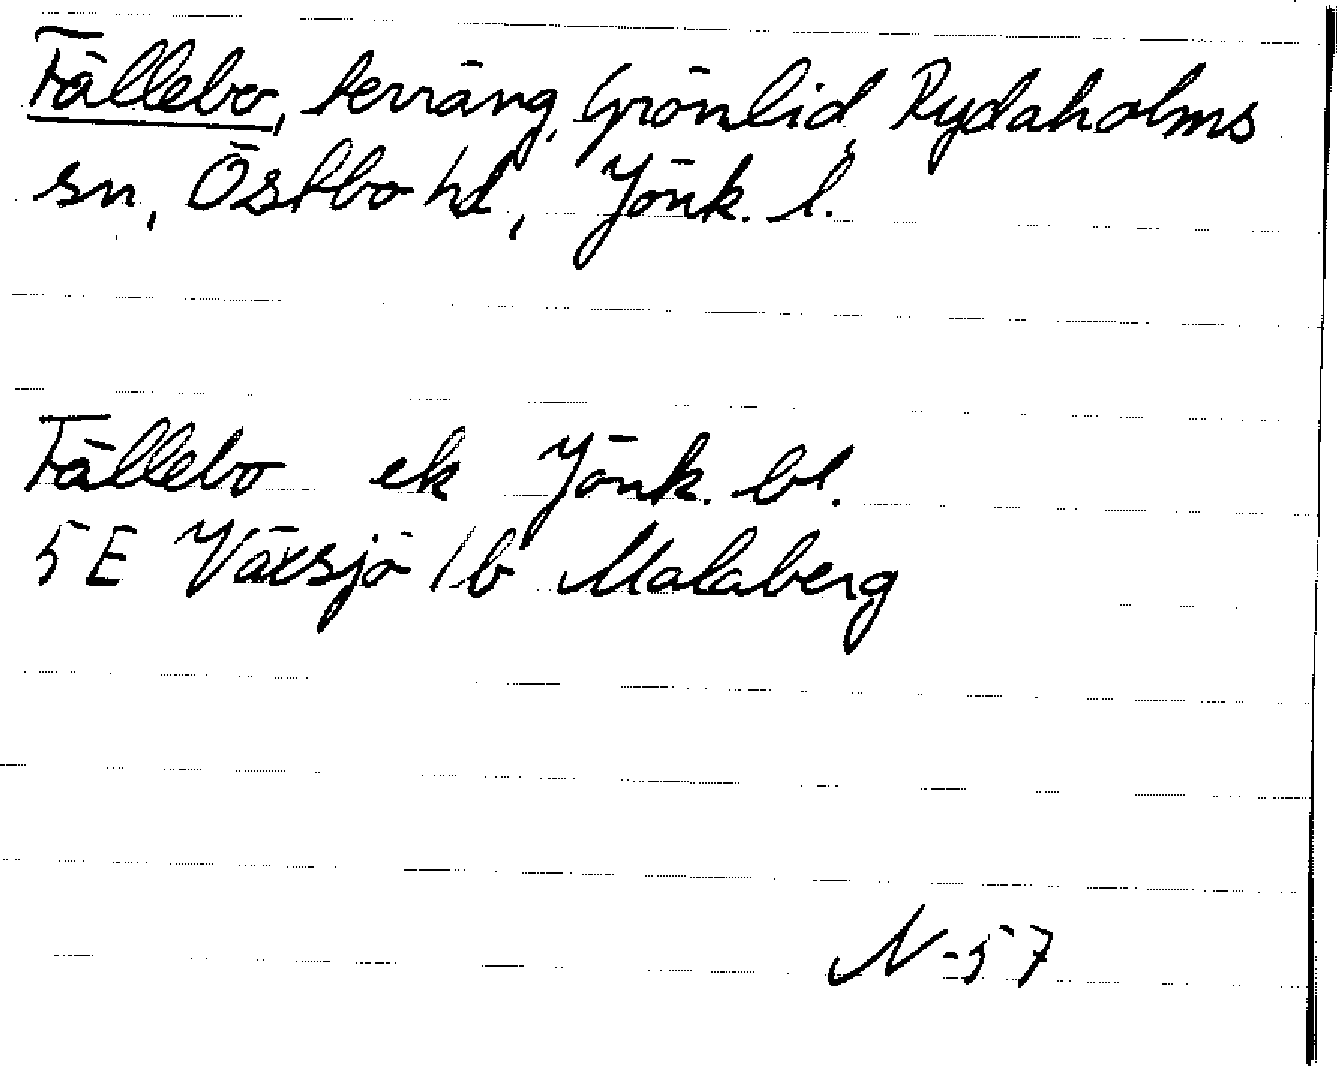 Fällebo, terräng, Grönlid, Rydaholms
sn, Östbo hd, Jönk. l.
Fällebo ek Jönk. bl.
5E Växsjö 1b Malaberg
N-57